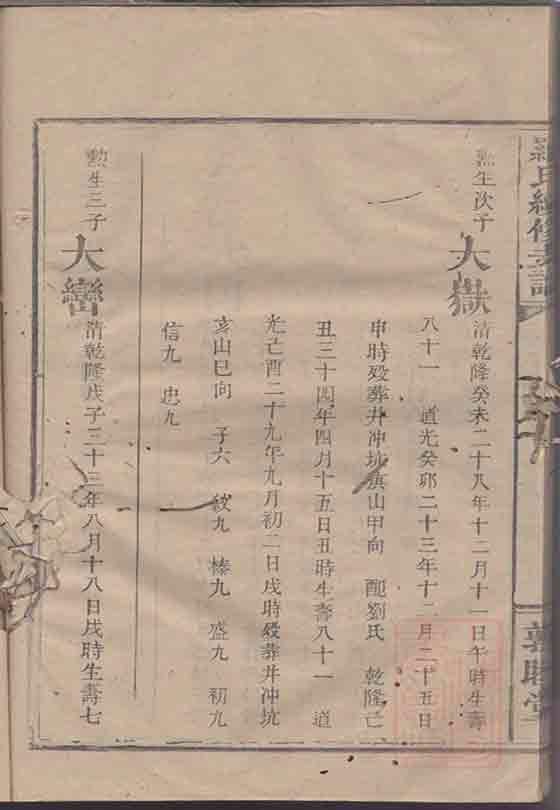 羅氏續修支譜
敦睦堂
勲生次子 大嶽 清乾隆癸未二十八年十二月十一日午時生壽
八十一 道光癸卯二十三年十二月二十五日
申時殁葬井冲坑旗山甲向 配劉氏 乾隆己
丑三十四年四月十五日丑時生壽八十一 道
光己酉二十九年九月初二日戌時殁葬井冲坑
亥山巳向 子六 紋九 榛九 盛九 初九
信九 忠九
勲生三子 大巒 清乾隆戊子三十三年八月十八日戌時生壽七